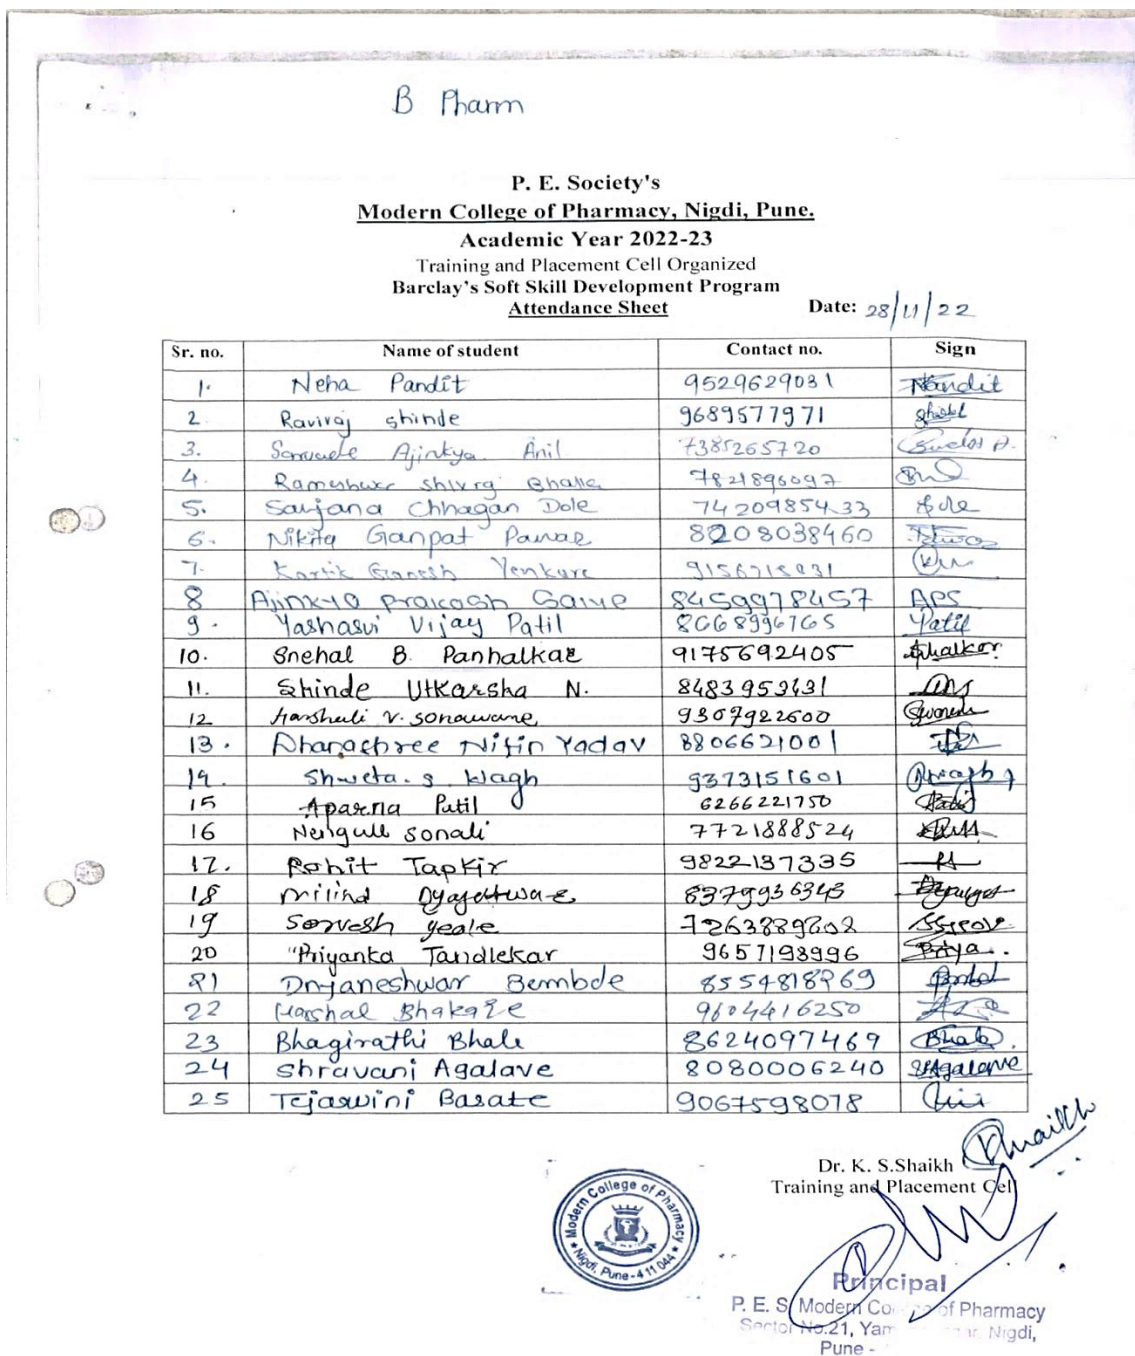 B Pharm
P. E. Society's
Modern College of Pharmacy, Nigdi, Pune.
Academic Year 2022-23
Training and Placement Cell Organized
Barclay's Soft Skill Development Program
Attendance Sheet Date: 28/11/22
Sr. no. Name of student Contact no. Sign
1. Neha Pandit 9529629031 Pandit
2. Raviraj shinde 9689577971
3. Ajinkya Anil 7385265720
4. Rameshwar 7821896097
5. Sanjana Chhagan Dole 7420985433 Dole
6. Nikita Ganpat Pawar 8208038460
7. Kartik Ganesh Yenkure
8 Ajinkya prakash 8459978457 APS
9. Yashasvi Vijay Patil 8668996765 Patil
10. Snehal B. Panhalkar 9175692405
11. Shinde Utkarsha N. 8483953431
12 Harshali V. sonawane 9307922600
13. Dhanashree Nitin Yadav 8806621001
14. Shweta. S Wagh 9373151601
15 Aparna Patil 6266221750 Patil
16 sonali 7721888524
17. Rohit Tapkir 9822137335
18 milind 8379936343
19 Sarvesh yeole
20 "Priyanka Tandlekar 9657198996 Priya.
21 Dnjaneshwar Bembde
22 Harshal Bhakare 9604416250
23 Bhagirathi Bhale 8624097469 Bhale
24 Shravani Agalave 8080006240 Agalave
25 Tejaswini Barate 9067598078
Shaikh
Dr. K. S.Shaikh
Training and Placement Cell
Modern College of Pharmacy
Nigdi, Pune-411 044
Principal
P. E. S. Modern of Pharmacy
Sector No.21, Nigdi,
Pune -